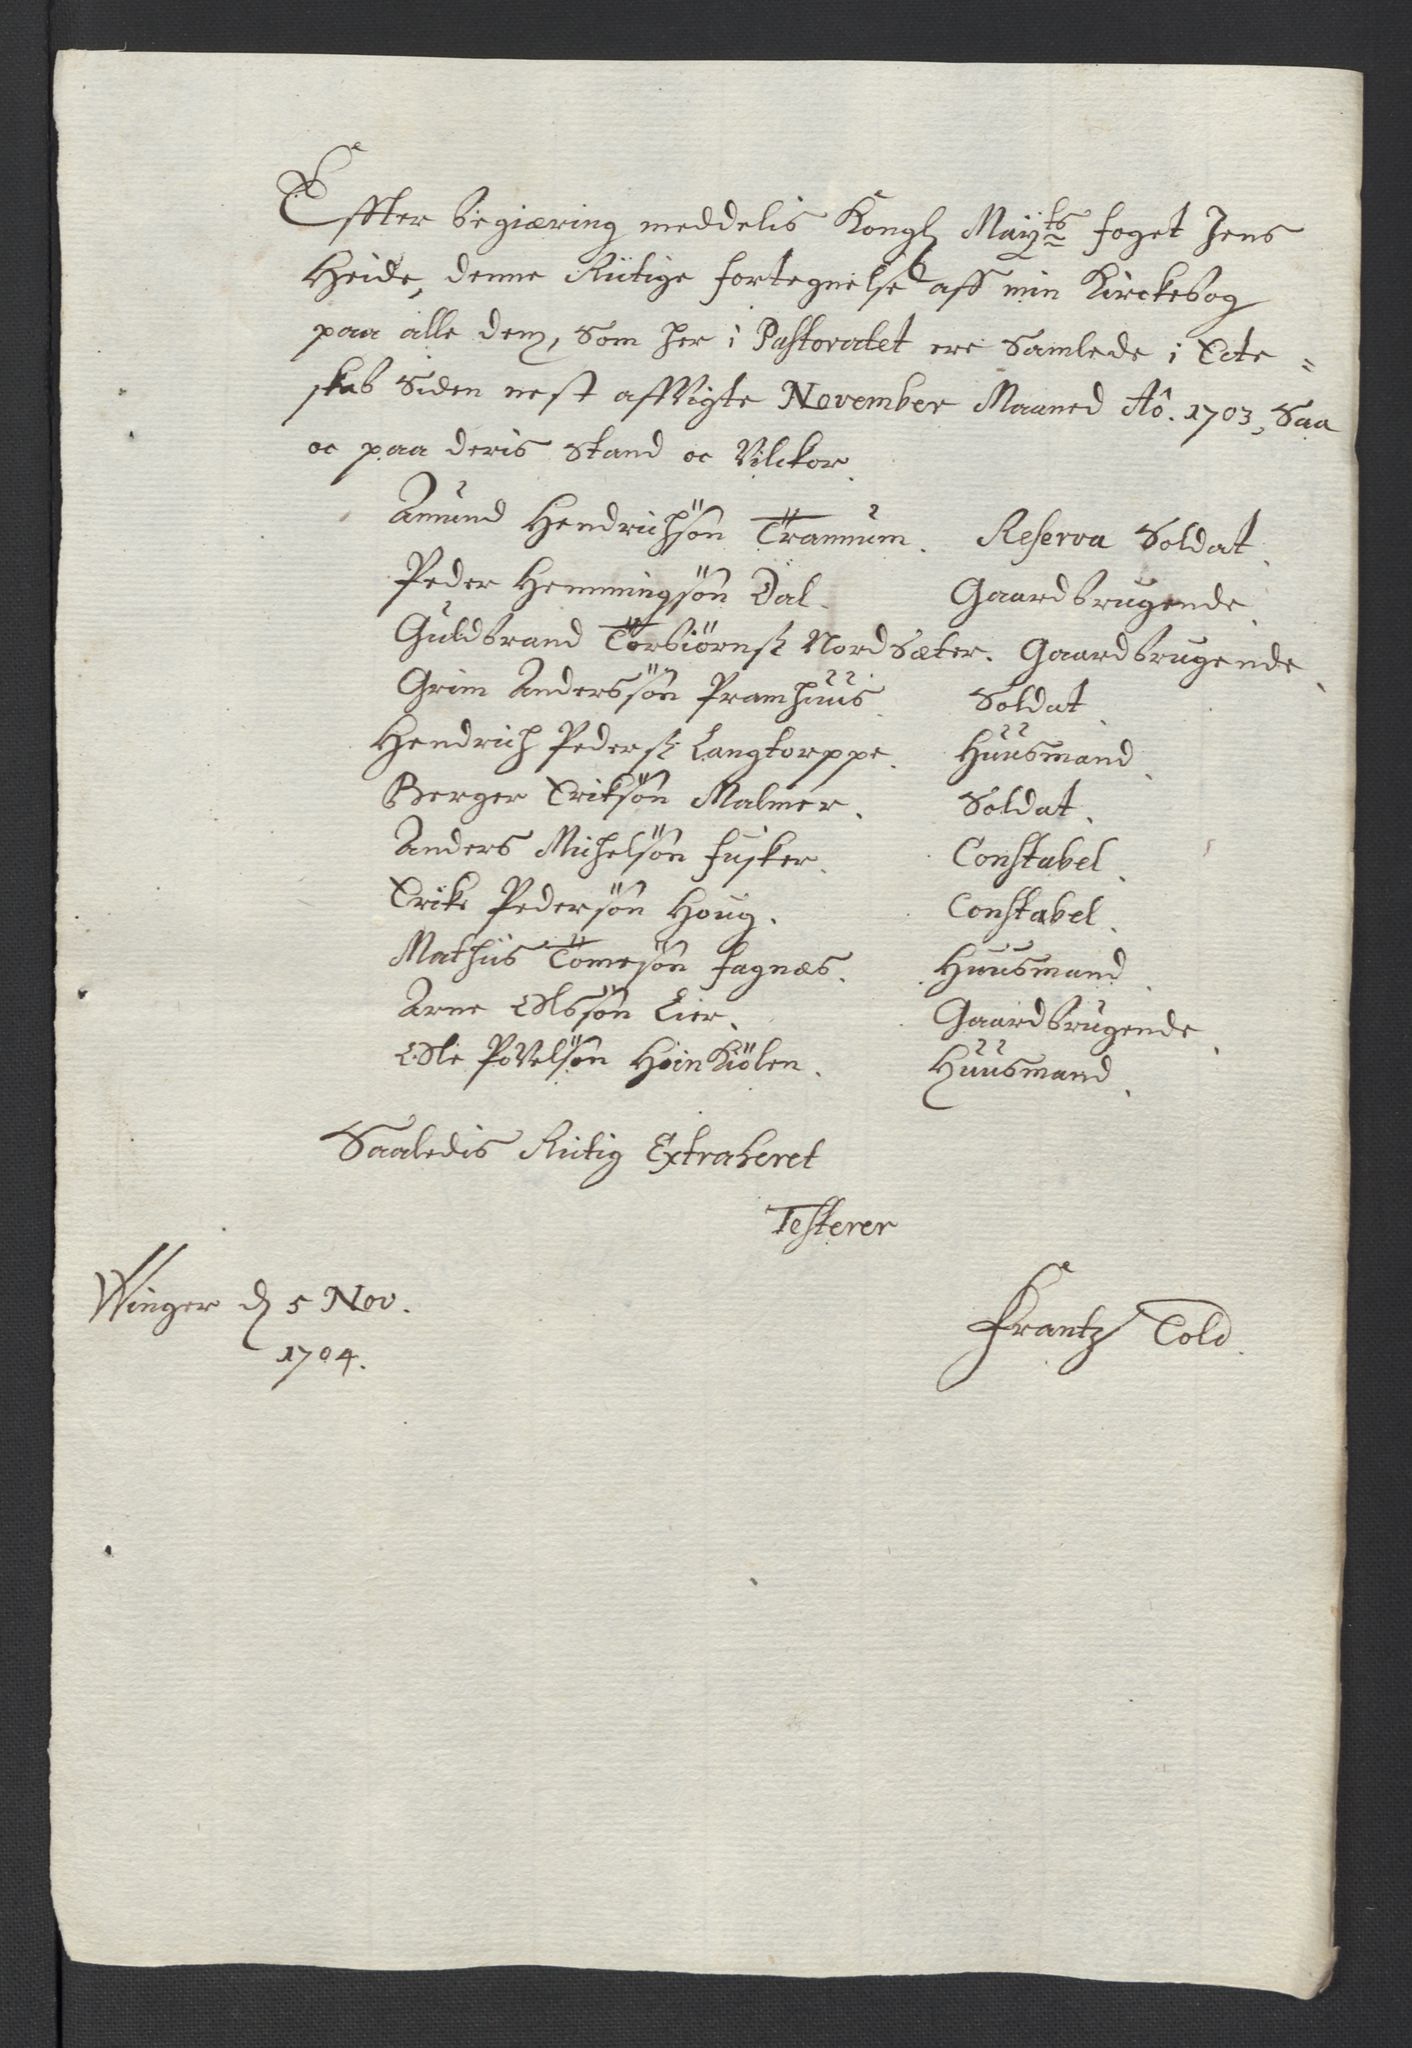 Effter begiæring meddelis Kongl Maÿts foget Jens
Heide, denne Rictige fortegnelse aff min Kirckebog
paa alle dem, Som her i Pastoratet ere Samlede i Ecte=
skab Siden nest affvigte November Maaned Aô. 1703, Saa
oc paa deris Stand oc Vilckor.
Amund Hendrichsön Trannum. Reserva Soldat.
Peder Hemmingsön Dal. Gaardbrugende.
Guldbrand Törbiörns: Nordsæter. Gaardbrugende.
Grim Anderssön Pramhuus. Soldat.
Hendrich Peders: Langtorppe. Huusmand.
Berger Eriksön Malmer. Soldat.
Anders Michelsön fusker. Constabel.
Erike Pedersön Houg. Constabel.
Mathiis Tömesön fagnæs. Huusmand.
Arne Olssön Lier. Gaardbrugende.
Ole Povelsön HöinKiölen. Huusmand.
Saaledis Rictig Extraheret
Testerer
Winger d 5 Nov.
1704.
Frantz Told.